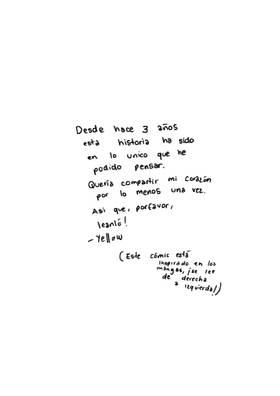 Desde hace 3 años
esta historia ha sido
en lo unico que he
podido pensar.
Quería compartir mi corazón
por lo menos una vez.
Asi que, porfavor,
leanló!
- Yellow
(Este cómic está
inspirado en los
mangas, ¡se lee
de derecha
a izquierda!)